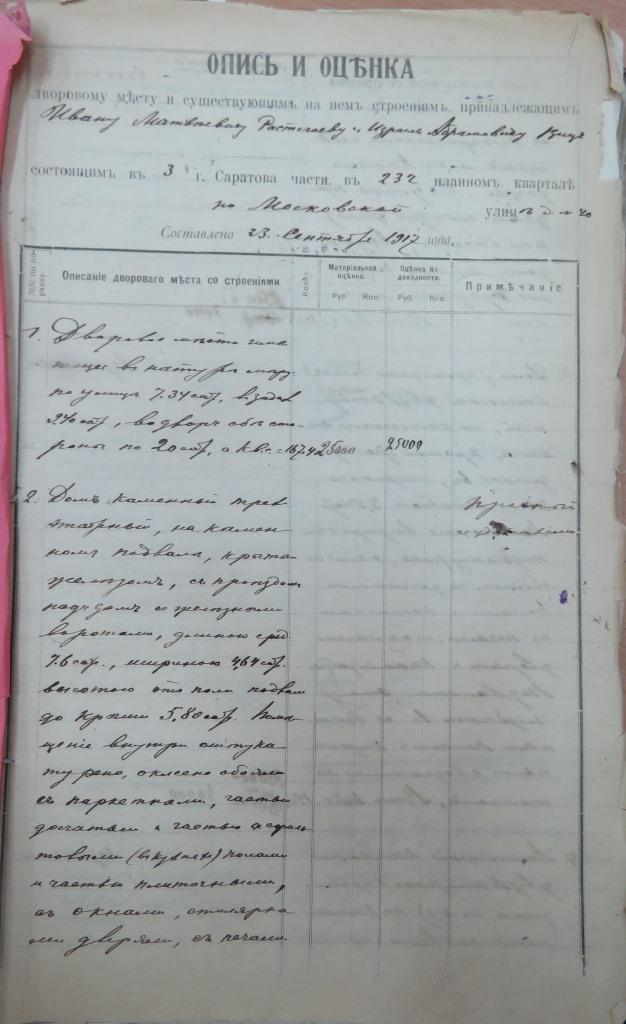 1
ОПИСЬ И ОЦѢНКА
дворовому мѣсту и существующимъ на немъ строеніямъ, принадлежащимъ
Ивану Матвѣевичу и Израилю Абрамовичу
состоящимъ въ 3 г. Саратова части, въ 232 планномъ кварталѣ
по Московской улицѣ д. №
Составлено 23 Сентября 1917 года.
№№ по порядку. Описаніе двороваго мѣста со строеніями Колич. Матеріальная оцѣнка. Оцѣнка по доходности. Примѣчаніе
Руб. Коп. Руб. Коп.
1. Дворовое мѣсто има
ющее въ натурѣ мѣру
по улицѣ 7.34 саж, взади
9.40 саж, во дворъ обѣ сто
роны по 20 саж, а кв. с. = 167.4 25000 25000
2. Домъ каменный трех
этажный, на камен
номъ подвалѣ, крытъ
желѣзомъ, съ проѣздомъ
подъ домъ съ желѣзными
воротами, длиною сред
7.6 саж., шириною 4,64 саж.
высотою отъ пола подвала
до крыши 5,80 саж. Помѣ
щеніе внутри оштука
турено, оклеено обоями
съ паркетными, частью
досчатыми и частью асфаль
товыми (въ кухняхъ) полами
и частью плиточными,
съ окнами, столярны
ми дверями, съ печами